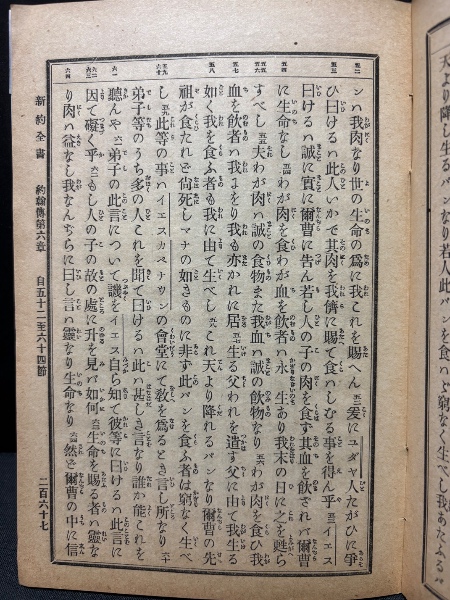 天より降し生るパンなり若人此パンを食はゞ窮なく生べし我あたふるパ
ンハ我肉なり世の生命の爲に我これを賜へん 五二 爰にユダヤ人たがひに爭
ひ曰けるハ此人いかで其肉を我儕に賜て食ハしむる事を得ん乎 五三 イエス
曰けるハ誠に實に爾曹に告ん若し人の子の肉を食ず其血を飮されバ爾曹
に生命なし 五四 わが肉を食わが血を飮者ハ永生あり我末の日に之を甦ら
すべし 五五 夫わが肉ハ誠の食物また我血ハ誠の飮物なり 五六 わが肉を食ひ我
血を飮者ハ我にをり我も亦かれに居 五七 生る父われを遣す父に由て我生る
如く我を食ふ者も我に由て生べし 五八 これ天より降れるパンなり爾曹の先
祖が食たれど尙死しマナの如きものに非ず此パンを食ふ者は窮なく生べ
し 五九 此等の事ハイエスカペナウンの會堂にて敎を爲るとき言し所なり 六十
弟子等のうち多の人これを聞て曰けるハ此ハ甚しき言なり誰か能これを
聽んや 六一 弟子の此言について譏をイエス自ら知て彼等に曰けるハ此言に
因て礙く乎 六二 もし人の子の故の處に升を見バ如何 六三 生命を賜る者ハ靈な
り肉ハ益なし我なんぢらに曰し言ハ靈なり生命なり 六四 然ど爾曹の中に信
新約全書 約翰傳第六章 自五十二至六十四節 二百六十七